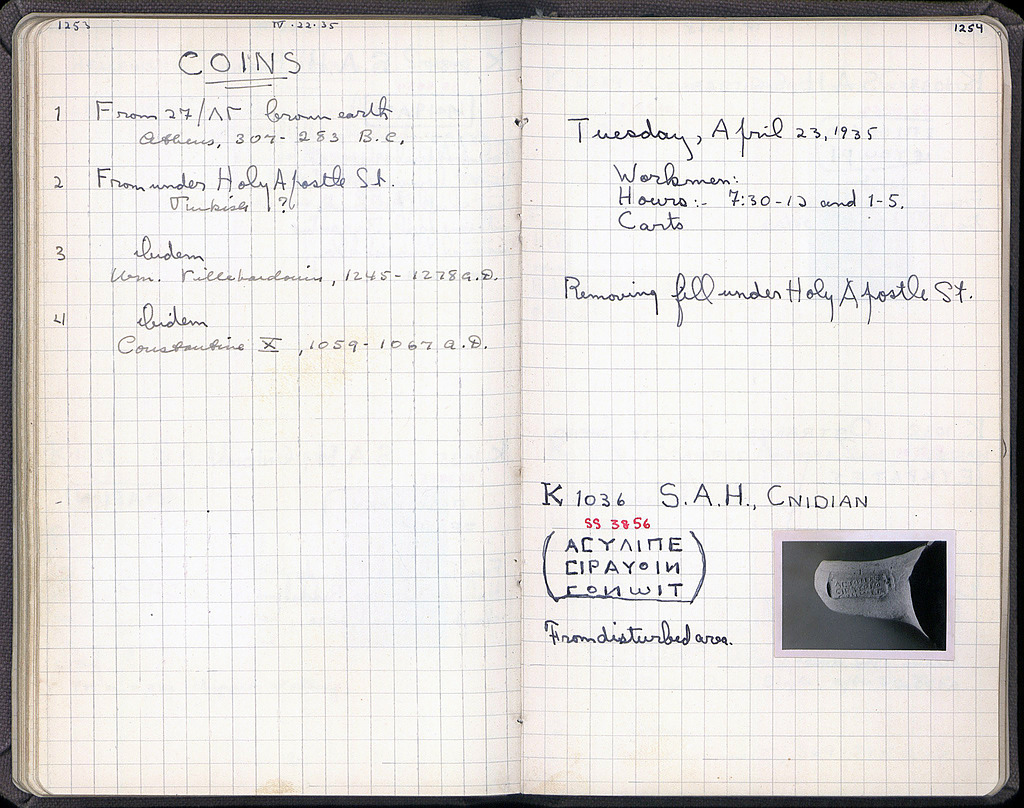 1253
IV.22.35
COINS
1 From 27/ΛΓ brown earth
Athens, 307-283 B.C.
2 From under Holy Apostle St.
Turkish ?
3 ibidem
Wm. Villehardouin, 1245-1278 A.D.
4 ibidem
Constantine X, 1059-1067 A.D.
1254
Tuesday, April 23, 1935
Workmen:
Hours:- 7:30-12 and 1-5.
Carts
Removing fill under Holy Apostle St.
K 1036 S.A.H., CNIDIAN
SS 3856
ΑCΥΛΙΠΕ
CΙΡΑΥΟΙΝ
ΓΟΝWΙΤ
From disturbed area.